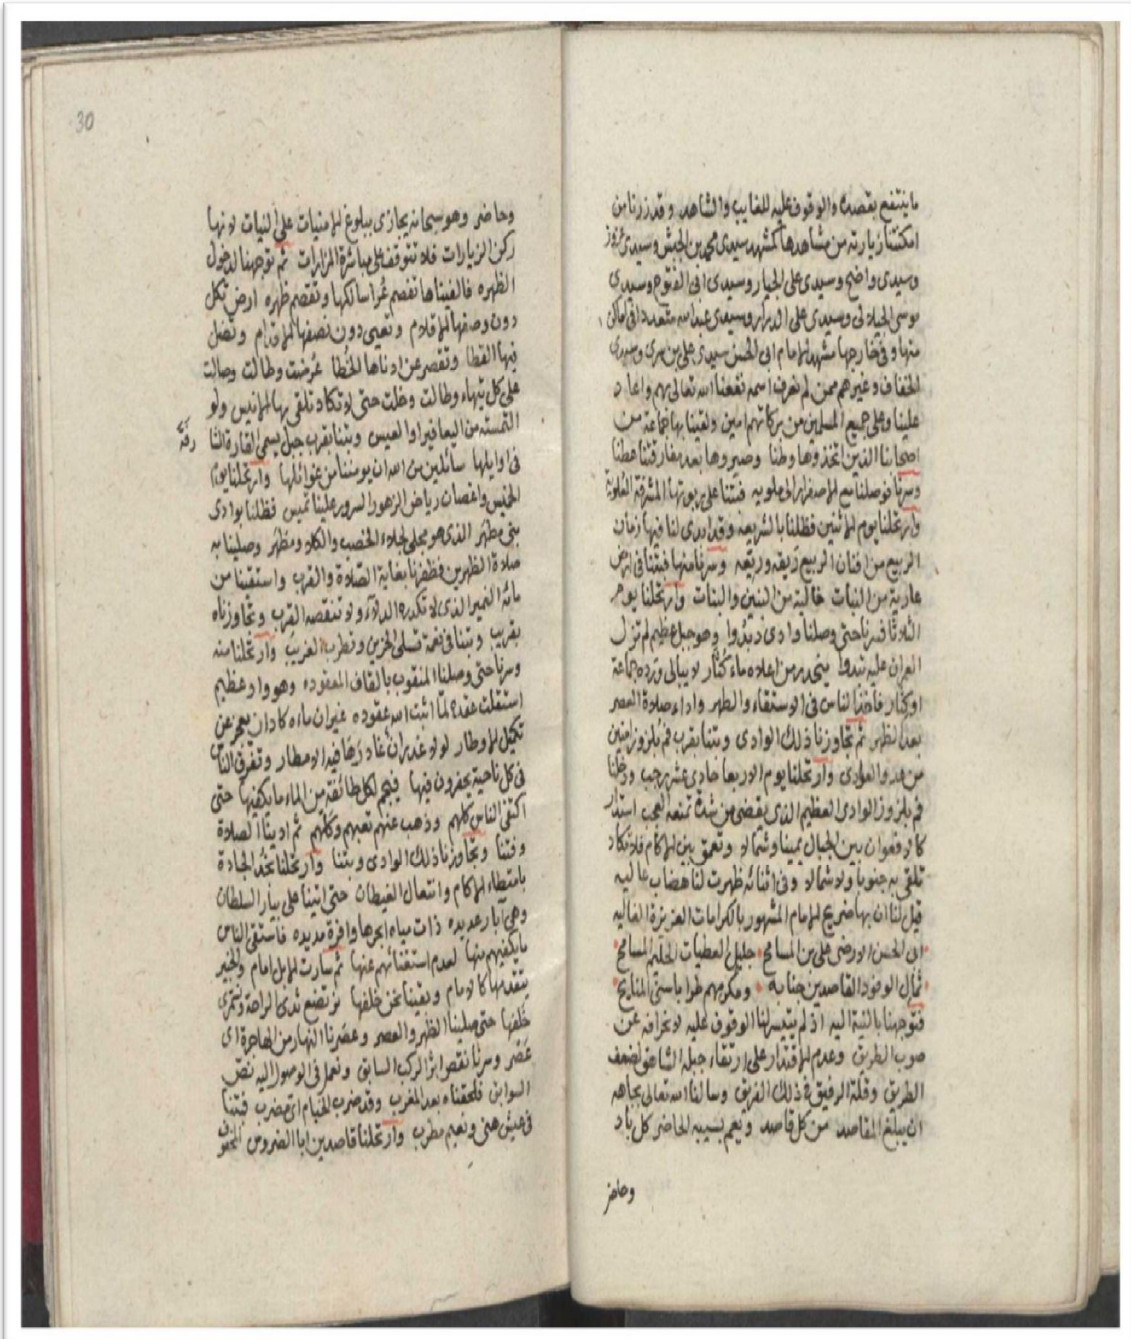 ما ينتفع بقصده والوقوف عليه للغايب والشاهد وقد زرنا من
امكننا زيارته من مشاهدها كمشهد سيدى محمد بن الجيش وسيدى
وسيدى واضح وسيدى على الجيار وسيدى ابى الفتوح وسيدى
موسى الجيلاني وسيدى على وسيدى عبد الله متعددا فى اماكن
منها وفى خارجها مشهد للامام ابى الحسن سيدى على بن سرى وسيدى
الخفاف وغيرهم ممن لم نعرف اسمه نفعنا الله تعالى بهم واعاد
علينا وعلى جميع المسلمين من بركاتهم امين ولقينا بها جماعة من
اصحابنا الذين اتخذوها وطنا وصيروها بعد مفارقتنا عطنا
وسرنا فوصلنا مع الاصفرار الى على المشرفة
وارتحلنا يوم الاثنين فظللنا بالشريعه وقد ادى لنا فيها زمان
الربيع من افنان الربيع ريقه وريعه وسرنا منها فبتنا فى ارض
عارية من النبات خالية من البنين والبنات وارتحلنا يوم
الثلاثا فسرنا حتى وصلنا وادى وهو جبل عظيم لم تزل
العربان عليه ينحدر من اعلاه ماء لا يبالى وترده جماعة
فاخذ الناس فى الاستقاء والطهر واداء صلاة العصر
بعد الظهر ثم تجاوزنا ذلك الوادى وبتنا بقرب فم
من وارتحلنا يوم الاربعا حادى عشر رجب ودخلنا
فم الوادى العظيم الذى يقضى من شدة العجب استدار
كالافعوان بين الجبال يمينا وشمالا وتعمق بين الاكام فلا تكاد
تلقى به جنوبا ولا شمالا وفى اثنائه ظهرت لنا هضاب عاليه
قيل لنا ان بها ضريح الامام المشهور بالكرامات العزيزة الغاليه
ابى الحسن الارضى على بن المسامح جليل العطيات الحليم المسامح
ثمال الوفود القاصدين جنابه ومكرمهم طرا باسنى المنايح
فتوجهنا بالنية اليه اذ لم يتيسر لنا الوقوف عليه لانحرافه عن
صوب الطريق وعدم الاقتدار على ارتقاء جبله الشاهق لضعف
الطريق وقلة الرفيق فى ذلك الفريق وسالنا الله تعالى بجاهه
ان يبلغ المقاصد من كل قاصد ويعم بسيبه الحاضر كل باد
وحاضر
30
وحاضر وهو سبحانه يجازى ببلوغ الامنيات على النيات لانها
ركن الزيارات فلا تتوقف على مباشرة المزارات ثم توجهنا لدخول
الظهره فالفيناها تفصم عرا سالكها وتقصم ظهره ارض تكل
دون وصفها الاقلام وتعيى دون نصفها الاقدام وتضل
فيها القطا وتقصر عن ادناها الخطا عرضت وطالت وصالت
على كل تيهاء وطالت وخلت حتى لا تكاد تلقى بها الانيس ولو
التمسته من اليعافير او العيس وبتنا بقرب جبل يسمى القارة
فى اوايلها سائلين من الله ان يومننا من غوائلها وارتحلنا يوم
الخميس واغصان رياض الزهور والسرور علينا تميس فظللنا بوادى
بنى مطهر الذى هو محلى لجلاء الخصب والكلا ومظهر وصلينا به
صلاة الظهرين فظفرنا بغاية الصلاة والقرب واستقينا من
مائه النمير الذى لا تكدره الدلاء ولا تنقصه القرب وتجاوزناه
بقريب وبتنا فى نعمة تسلى الحزين وتطرب الغريب وارتحلنا منه
وسرنا حتى وصلنا المنقوب بالقاف المعقوده وهو واد عظيم
عقوده غير ان ماءه كاد ان يعجز عن
تكميل الاوطار لولا غدران غادرها فيه الامطار وتفرق الناس
فى كل ناحية يحفرون فيها فيجم لكل طائفة من الماء ما يكفيها حتى
اكتفى الناس كلهم وذهب عنهم تعبهم وكلهم ثم ادينا الصلاة
وقتنا وتجاوزنا ذلك الوادى وبتنا وارتحلنا نخد الجادة
بامتطاء الاكام وانتعال الغيطان حتى اتينا على بيار السلطان
وهى آبار عديده ذات مياه ابحرها وافرة مديده فاستقى الناس
ما يكفيهم منها لعدم استغنائهم عنها ثم سارت الابل امام والخير
يتقدمها كالامام وبقينا نحن خلفها نرتضع ثدى الراحة ونمترى
خلفها حتى صلينا الظهر والعصر وعصرنا النهار من الهاجرة اى
عصر وسرنا نقص اثر الركب السابق ونعمل فى الوصول اليه نص
السوابق فلحقناه بعد المغرب وقد ضرب الخيام اى مضرب فبتنا
فى عيش هنى ونعيم مطرب وارتحلنا قاصدين ابا الضروس